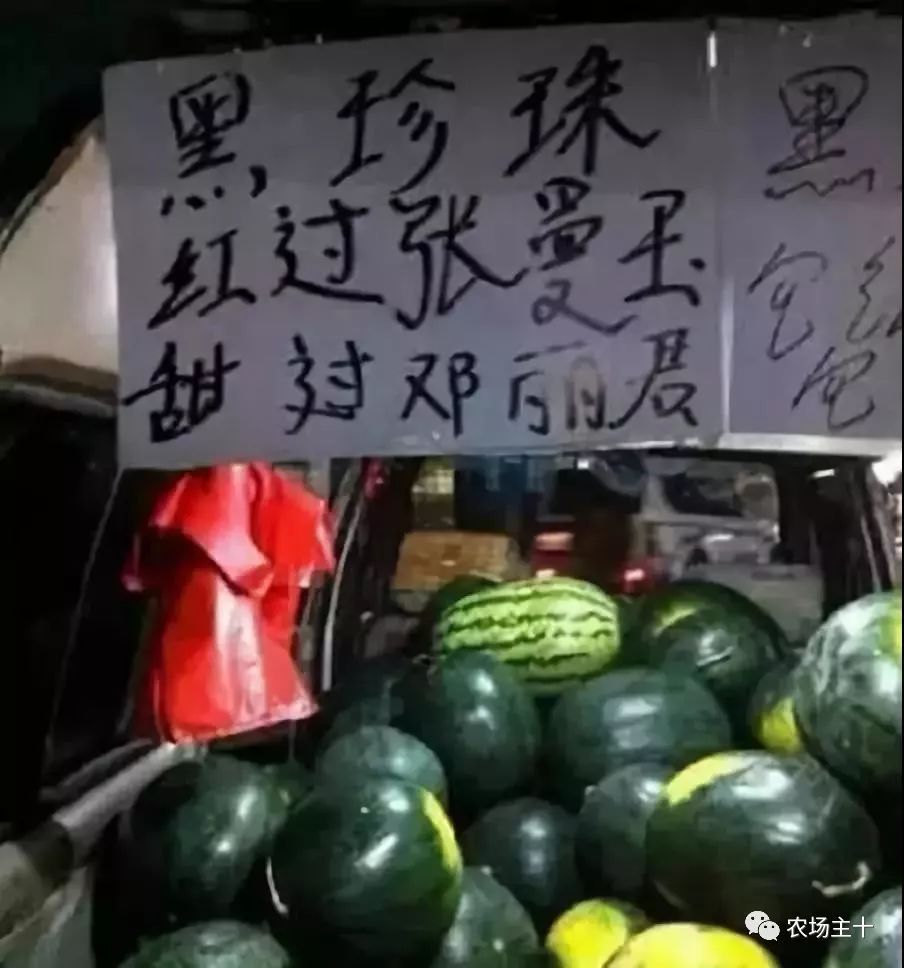 黑珍珠
红过张曼玉
甜过邓丽君
黑
包
包
农场主十